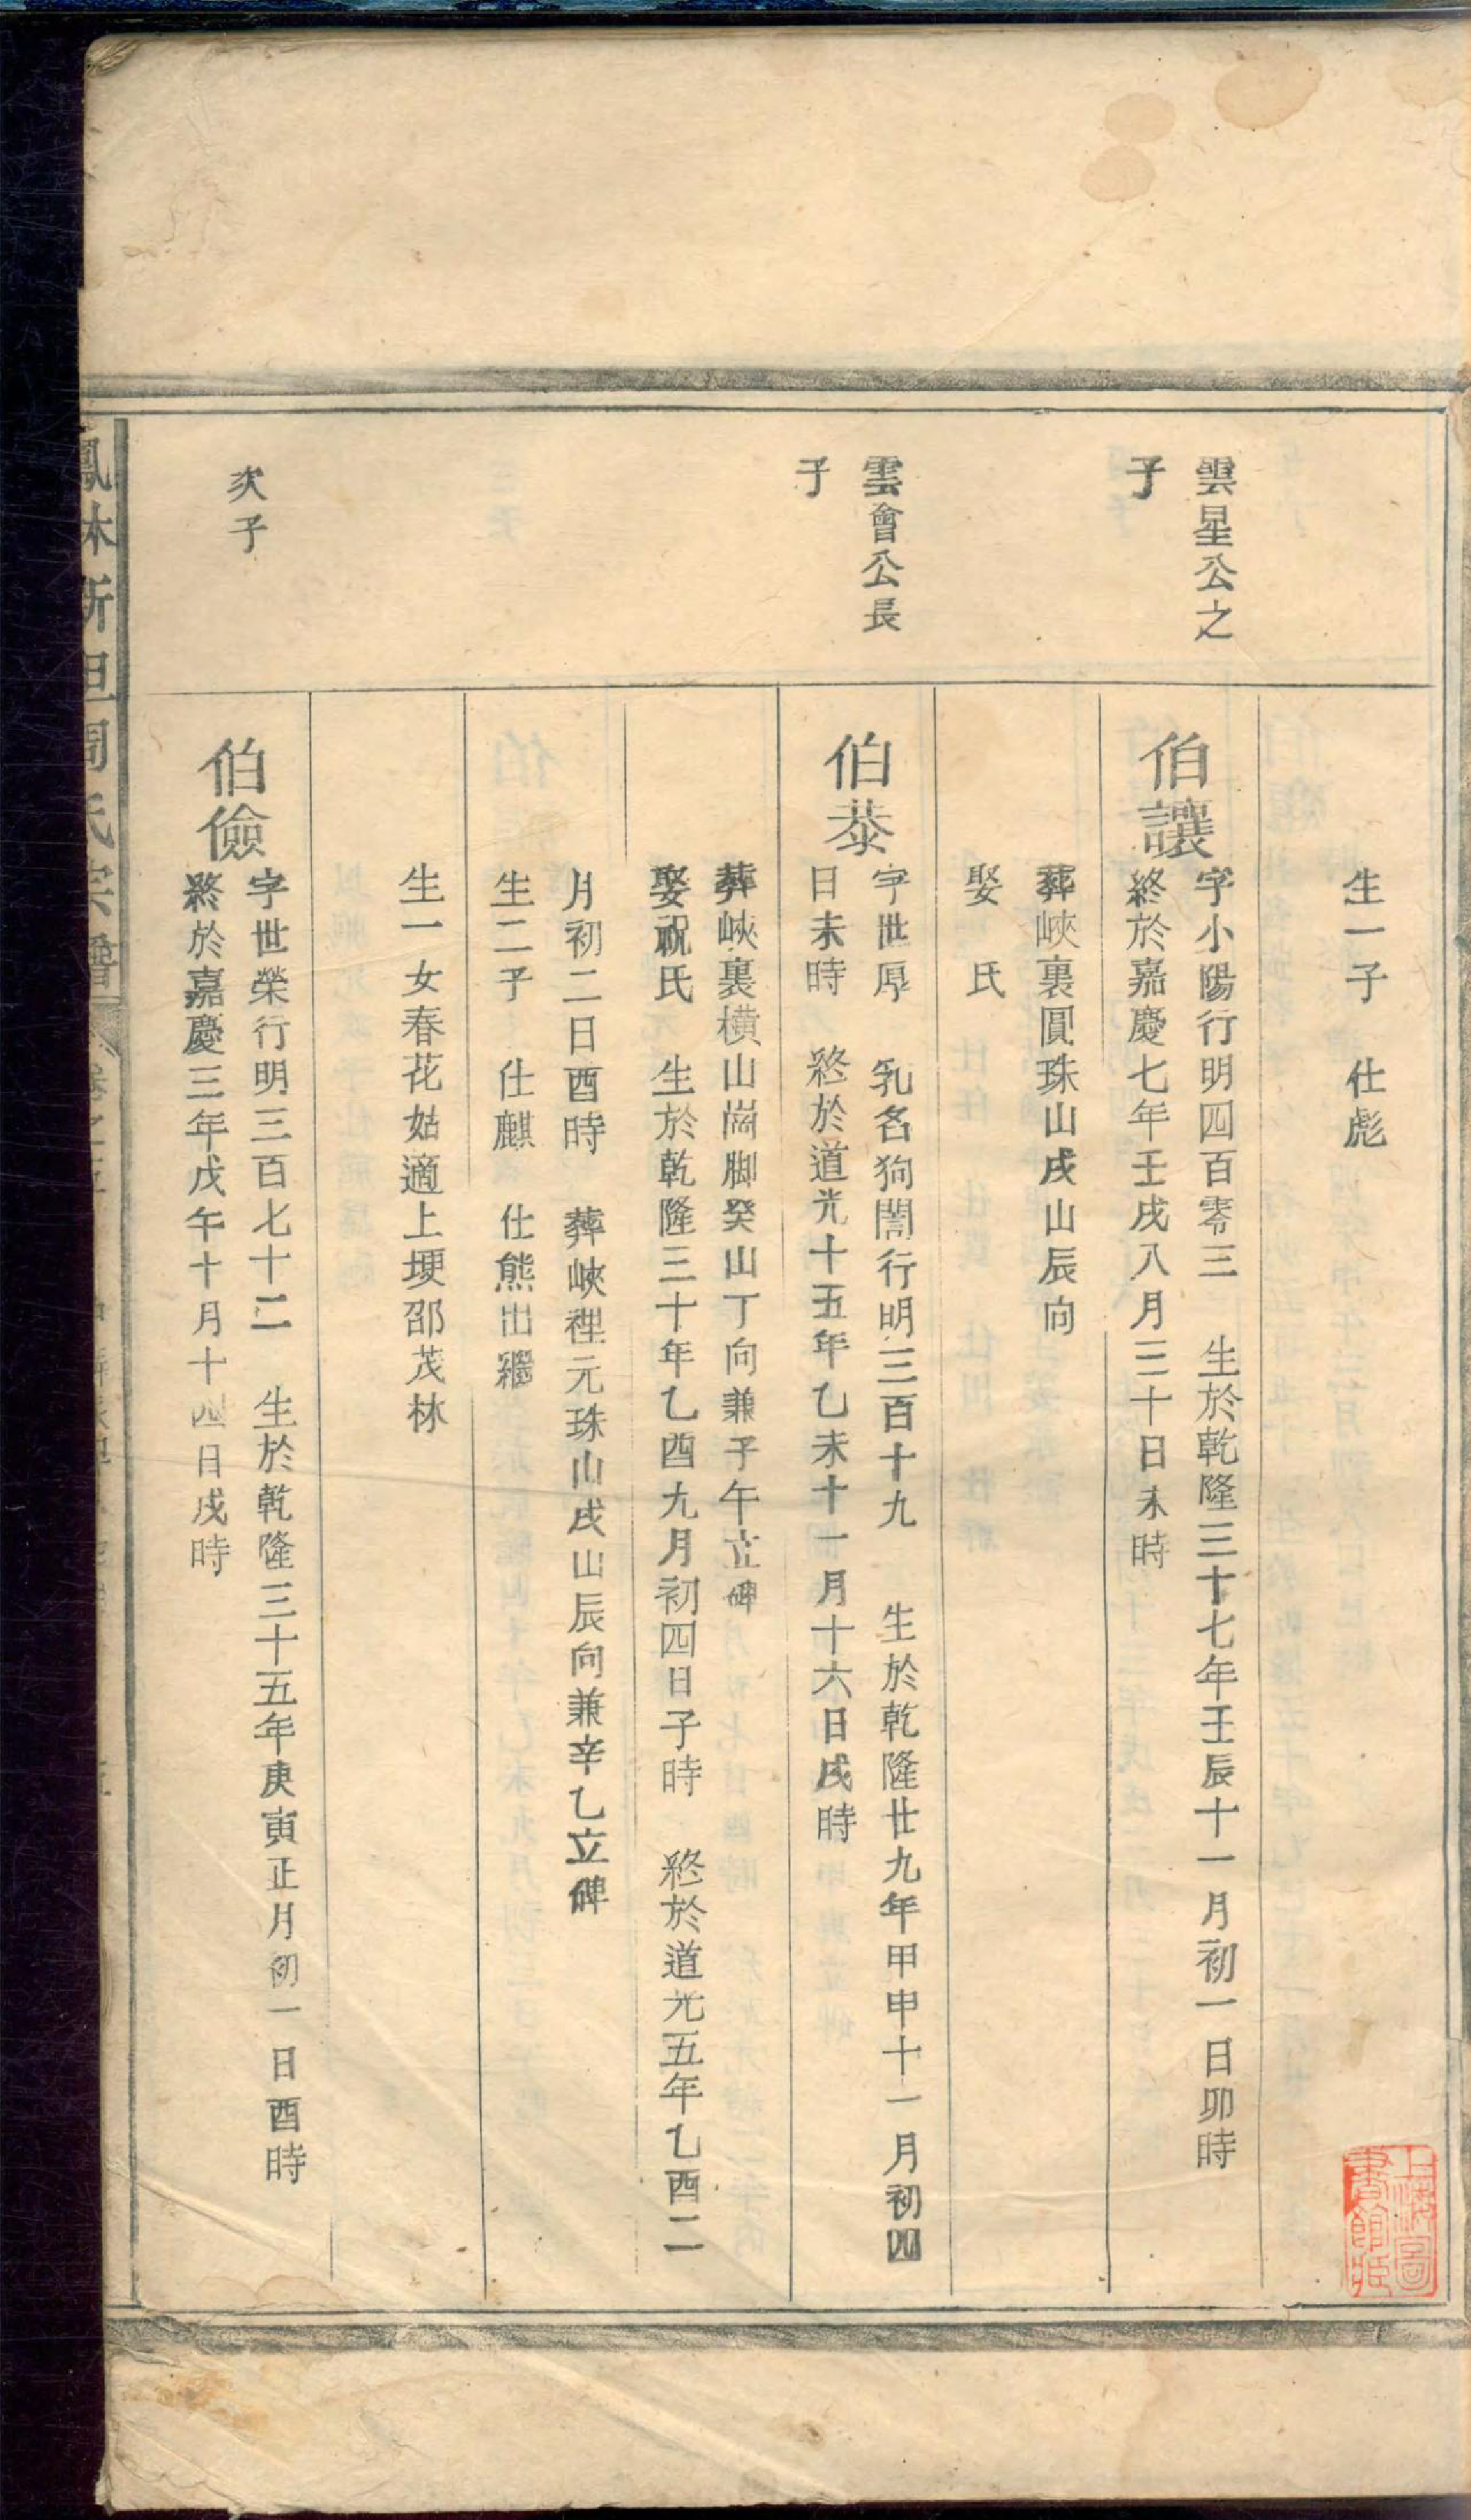 生一子　仕彪
雲星公之
子
伯讓
字小陽行明四百零三　生於乾隆三十七年壬辰十一月初一日卯時
終於嘉慶七年壬戌八月三十日未時
葬峽裏圓珠山戌山辰向
娶　氏
雲會公長
子
伯恭
字世厚　乳名狗闇行明三百十九　生於乾隆廿九年甲申十一月初四
日未時　終於道光十五年乙未十一月十六日戌時
葬峽裏橫山崗脚癸山丁向兼子午立碑
娶祝氏　生於乾隆三十年乙酉九月初四日子時　終於道光五年乙酉二
月初二日酉時　葬峽裡元珠山戌山辰向兼辛乙立碑
生二子　仕麒　仕熊出繼
生一女春花姑適上埂邵茂林
次子
伯儉
字世榮行明三百七十二　生於乾隆三十五年庚寅正月初一日酉時
終於嘉慶三年戊午十月十四日戌時
上海圖
書館藏